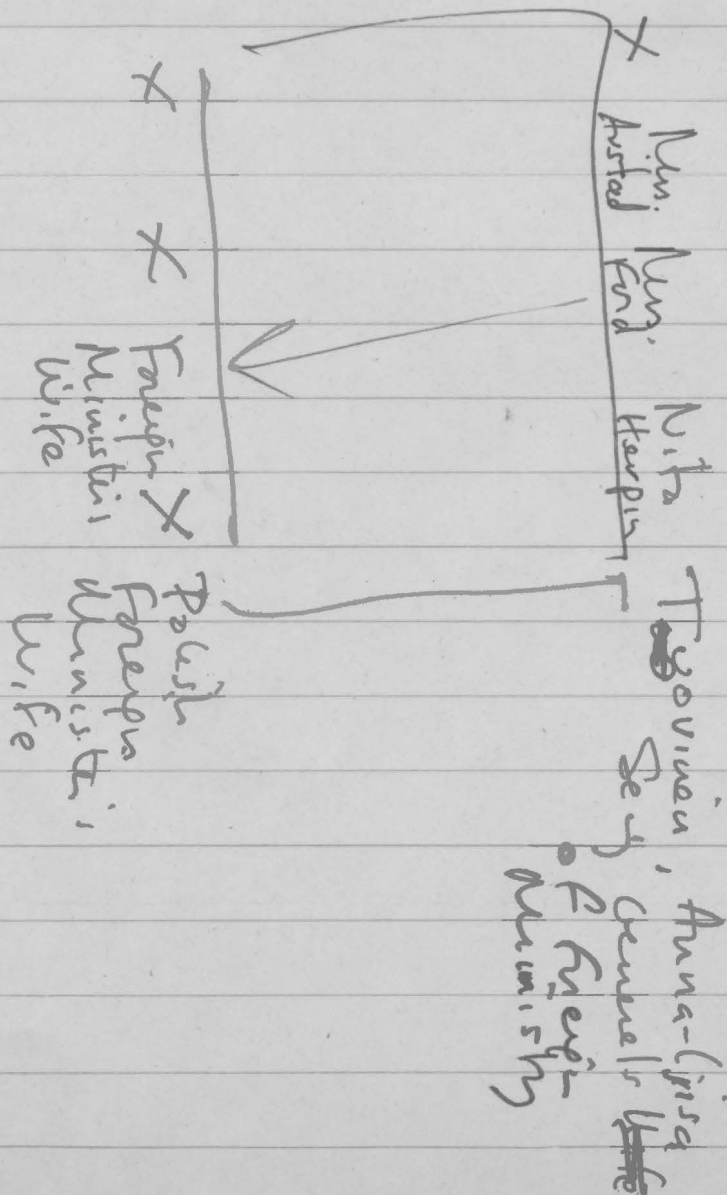 X Mrs. Mrs. Nita
Austad Ford Herpin
Tuovinen, Anna-Liisa
Sec'y Generals Wife
of Foreign
Ministry
X X X
Foreign
Minister's
Wife
Polish
Foreign
Minister's
Wife